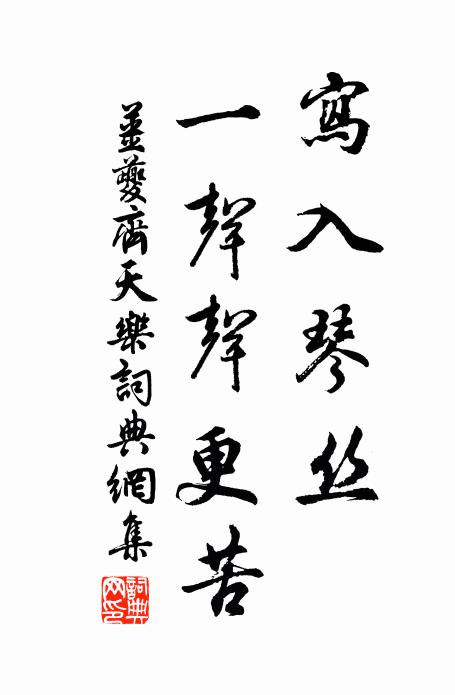 寫入琴丝
一聲聲更苦
姜夔齊天樂詞典網集
詞典网印